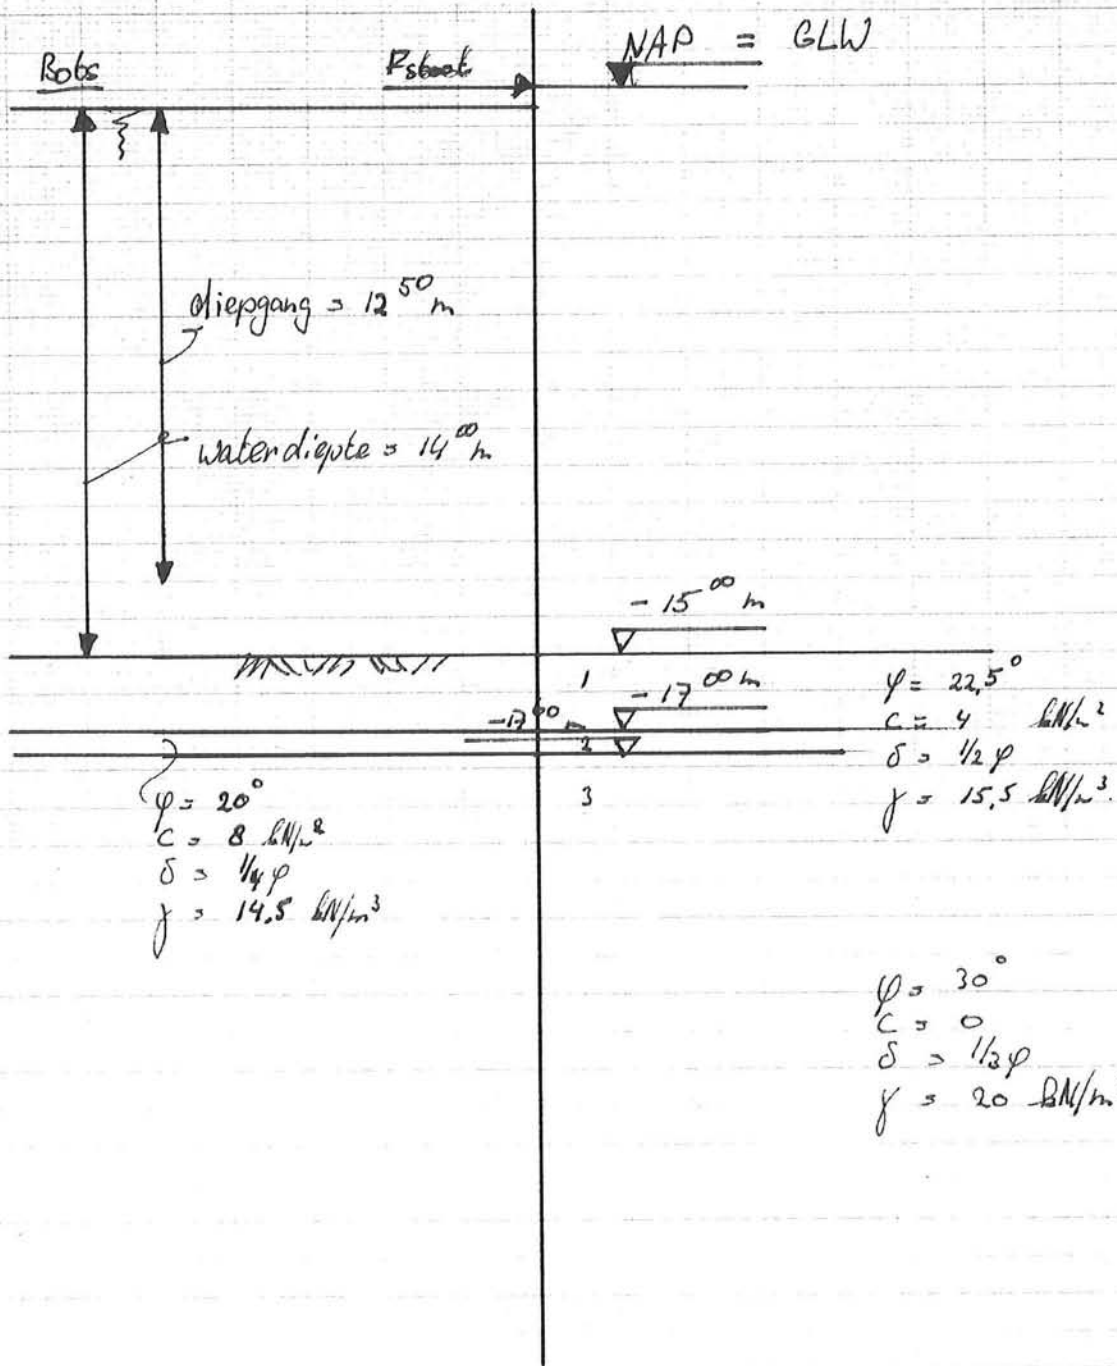 NAP = GLW
Bots
Fstoot
diepgang = 12⁵⁰ m
waterdiepte = 14⁰⁰ m
- 15⁰⁰ m
1
- 17⁰⁰ m
φ = 22,5°
c = 4 kN/m²
δ = 1/2 φ
γ = 15,5 kN/m³.
2
3
φ = 20°
c = 8 kN/m²
δ = 1/4 φ
γ = 14.5 kN/m³
φ = 30°
c = 0
δ = 1/3 φ
γ = 20 kN/m